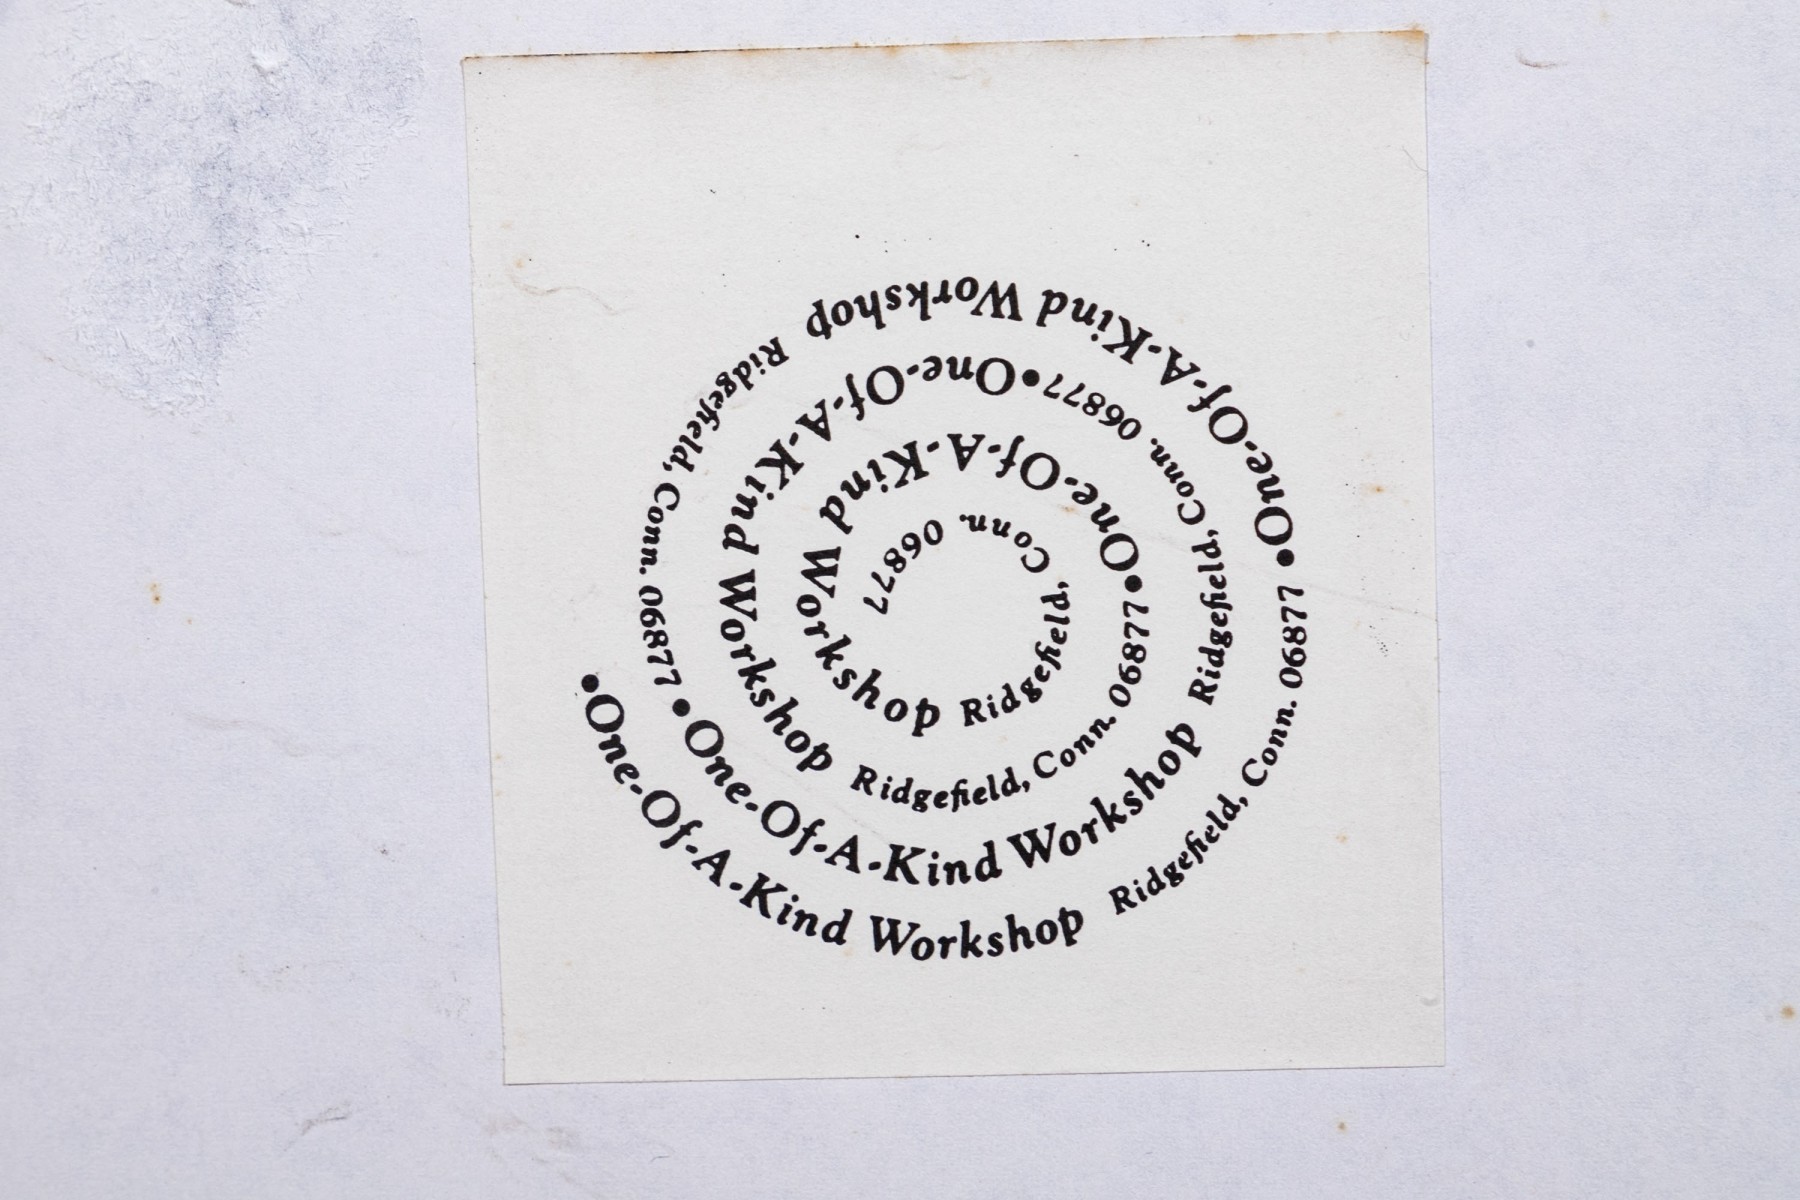 •One-Of-A-Kind Workshop Ridgefield, Conn. 06877
•One-Of-A-Kind Workshop Ridgefield, Conn. 06877
•One-Of-A-Kind Workshop Ridgefield, Conn. 06877
•One-Of-A-Kind Workshop Ridgefield, Conn. 06877
•One-Of-A-Kind Workshop Ridgefield, Conn. 06877